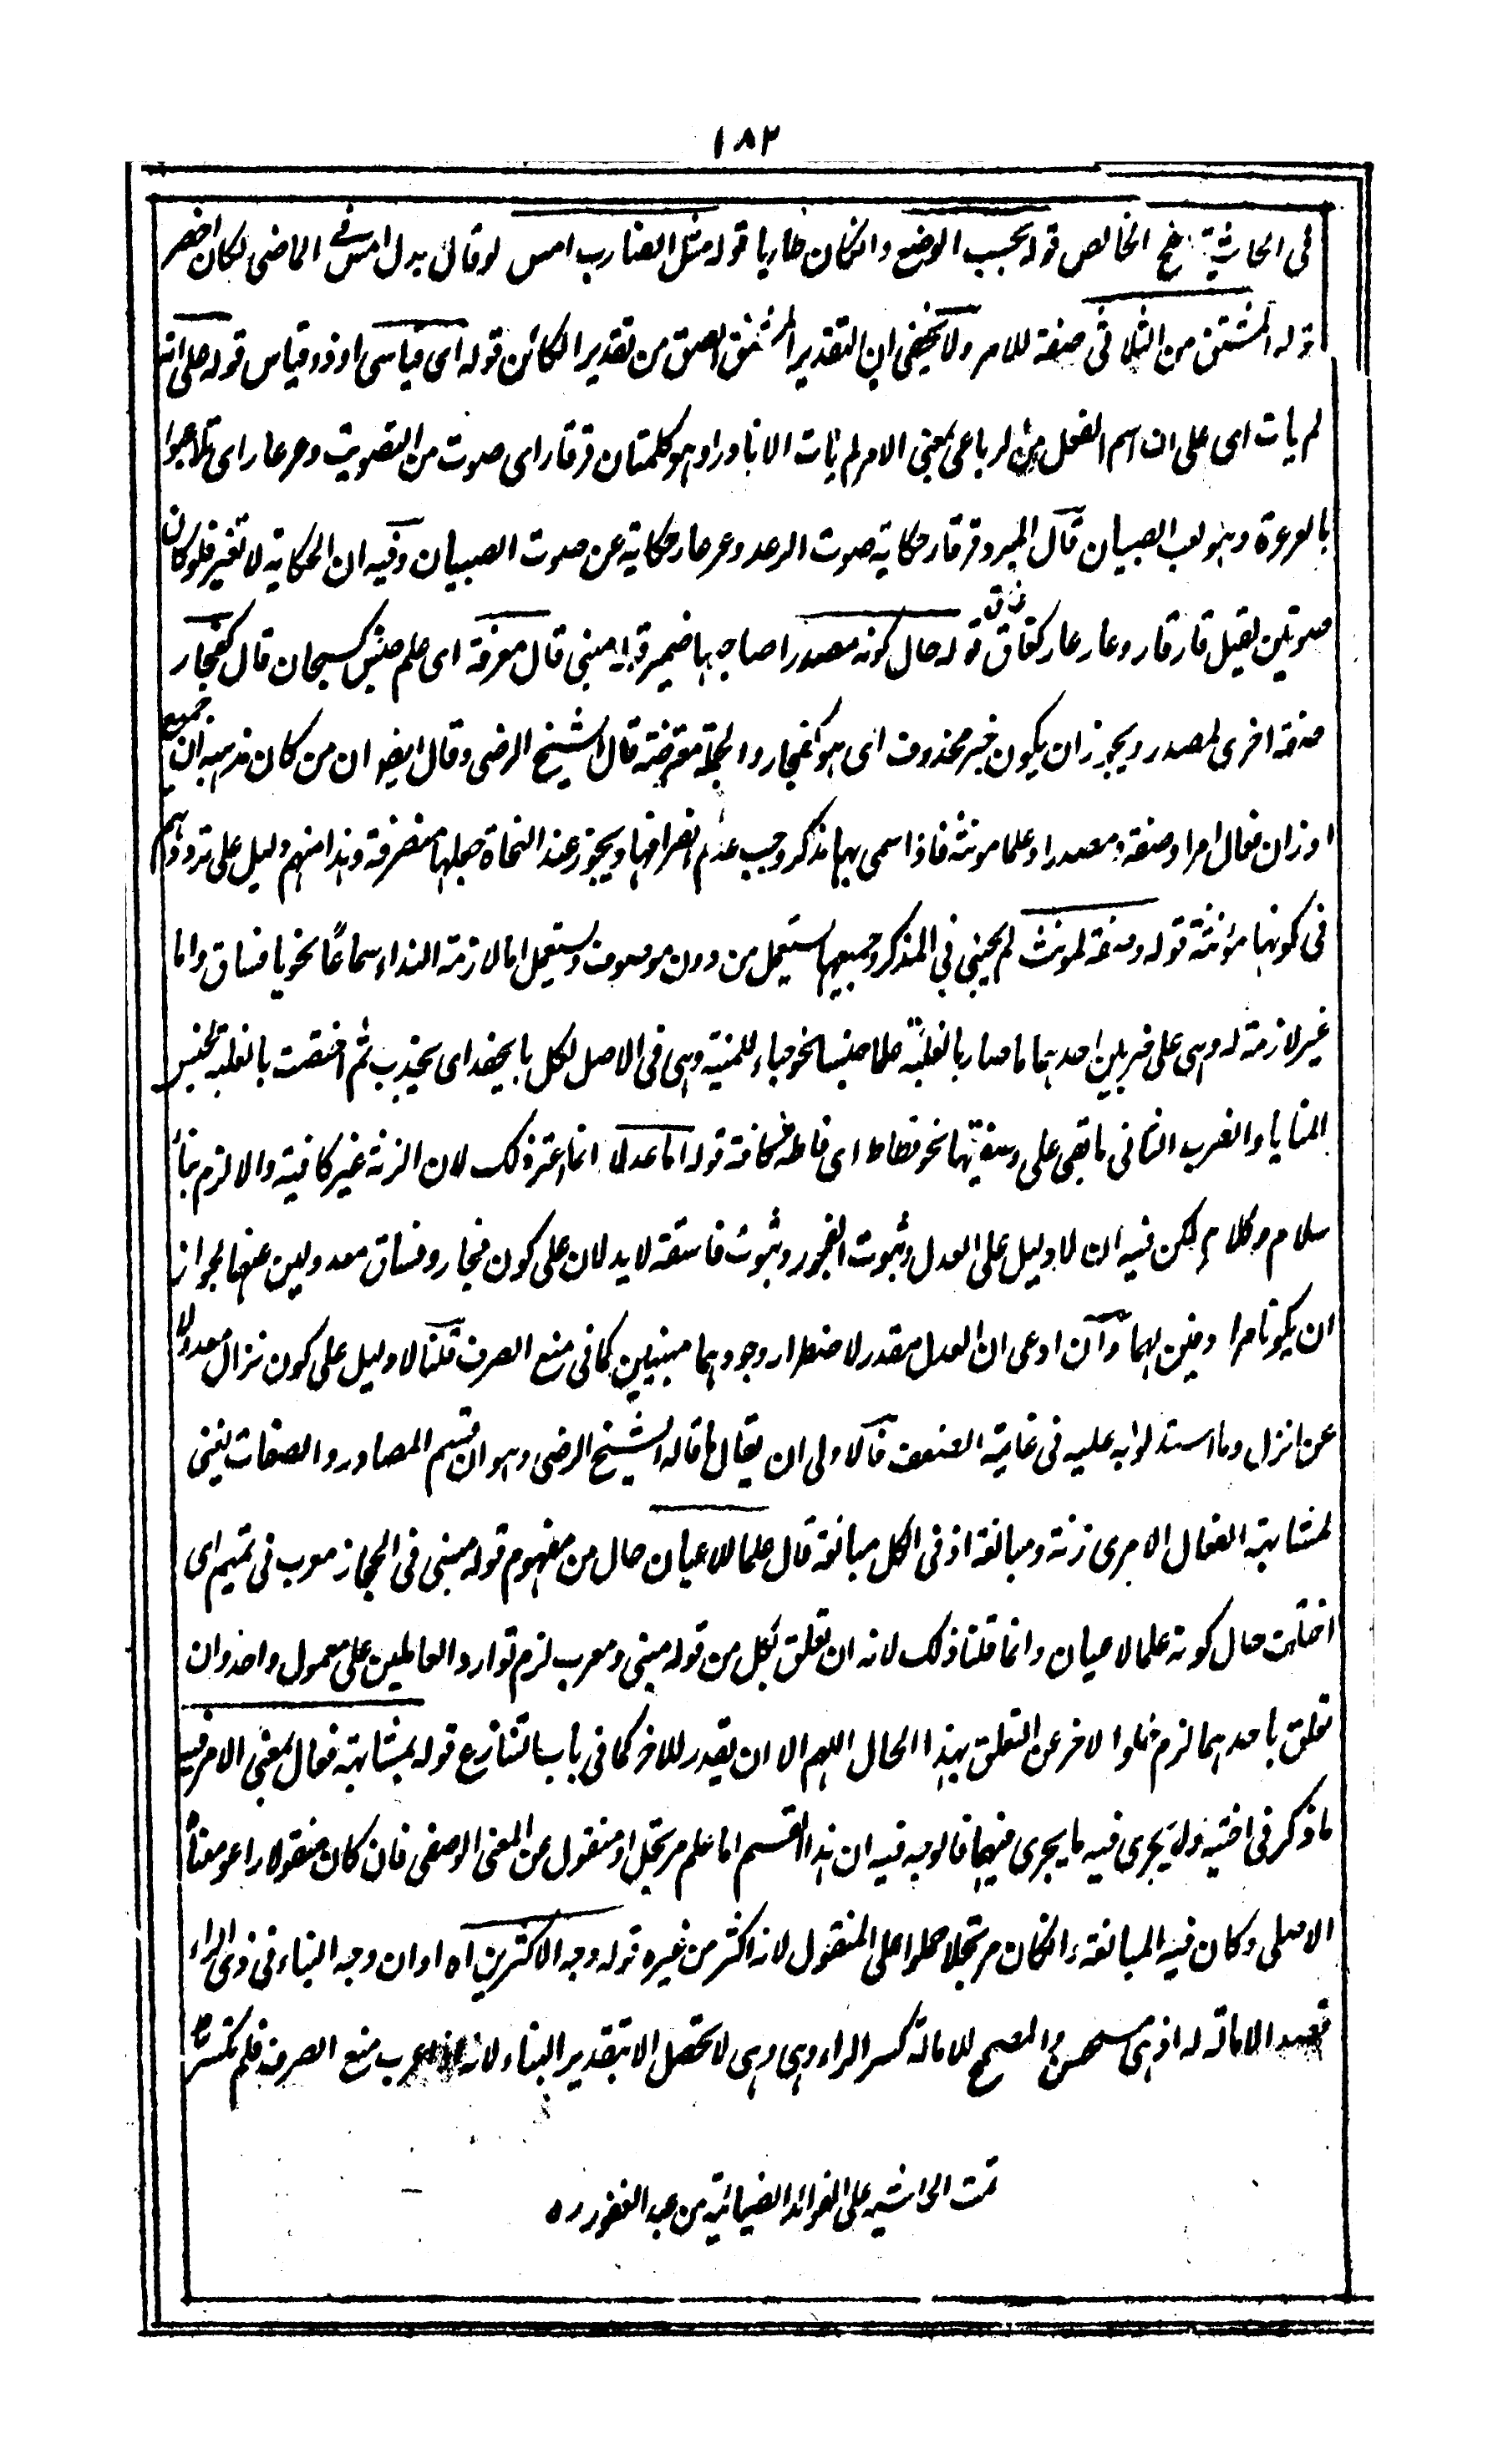 ١٨٢
فى الحاشية الخالص قوله بحسب الوضع وانكان طاريا قوله مثل الضارب امس لو قال بدل امس فى الماضى لكان اخصر
قوله المشتق من الثلاثى صفة للامر ولا يخفى ان التقدير المشتق الصق من تقدير الكائن قوله اى قياسى او ذو قياس قوله على انه
لم يات اى على ان اسم الفعل من الرباعى بمعنى الامر لم يات الا نادرا وهو كلمتان قرقار اى صوت من التصويت وعرعار اى تلاعبوا
بالعرعرة وهو لعب الصبيان قال المبرد قرقار حكاية صوت الرعد وعرعار حكاية عن صوت الصبيان وفيه ان الحكاية لا تغير فلو كان
صوتين لقيل قارقار وعارعار كغاق غاق قوله حال كونه مصدرا صاحبها ضمير قوله مبنى قال معرفة اى علم جنس كسبحان قال كفجار
صفة اخرى لمصدر ويجوز ان يكون خبر محذوف اى هو كفجار والجملة معترضة قال الشيخ الرضى وقال ايضا ان من كان مذهبه ان جميع
اوزان فعال امرا وصفة ومصدرا وعلما مونثة فاذا سمى بها مذكر وجب عدم انصرافها ويجوز عند النحاة جعلها منصرفة وهذا منهم دليل على ترددهم
فى كونها مؤنثة قوله وصفة لمونث لم يجئ فى المذكر وجميعها يستعمل من دون موصوف ويستعمل اما لازمة النداء سماعًا نحو يا فساق واما
غير لازمة له وهى على ضربين احدهما ما صار بالغلبة علما جنسيا نحو جباذ للمنية وهى فى الاصل لكل ما يجبذ اى يجذب ثم اختصت بالغلبة لجنس
المنايا والضرب الثانى ما بقى على وصفيتها نحو قطاط اى قاطة كافة قوله اما عدلا انما اعتبر ذلك لان الزنة غير كافية والا لزم بناء
سلام وكلام لكن فيه ان لا دليل على العدل وثبوت الفجور وثبوت فاسقة لا يدلان على كون فجار وفساق معدولين عنها لجواز
ان يكونا مرادفين لهما وان ادعى ان العدل مقدر لاضطرار وجودهما مبنيين كما فى منع الصرف قلنا لا دليل على كون نزال معدولا
عن انزل وما استدلوا به عليه فى غاية الضعف فالاولى ان يقال ما قاله الشيخ الرضى وهو ان قسم المصادر والصفات بنى
لمشابهة الفعال الامرى زنة ومبالغة اذ فى الكل مبالغة قال علما للاعيان حال من مفهوم قوله مبنى فى الحجاز معرب فى تميم اى
اختلف حال كونه علما لاعيان وانما قلنا ذلك لانه ان تعلق بكل من قوله مبنى ومعرب لزم توارد العاملين على معمول واحد وان
تعلق باحدهما لزم خلو الاخر عن التعلق بهذا الحال اللهم الا ان يقدر للاخر كما فى باب التنازع قوله لمشابهة فعال بمعنى الامر فيه
ما ذكر فى اختيه ولا يجرى فيه ما يجرى فيهما فالوجه فيه ان هذا القسم اما علم مرتجل او منقول عن المعنى الوصفى فان كان منقولا راعوا معناه
الاصلى وكان فيه المبالغة وانكان مرتجلا حملوا على المنقول لانه اكثر من غيره قوله وجه الاكثرين اه او ان وجه البناء فى ذى الراء
قصد الامالة له اذ هى مستحسن والمصحح للامالة كسر الراء وهى وهى لا تحصل الا بتقدير البناء لانه اذا اعرب منع الصرف فلم تكسر
تمت الحاشيه على الفوائد الضيائية من عبد الغفور ره